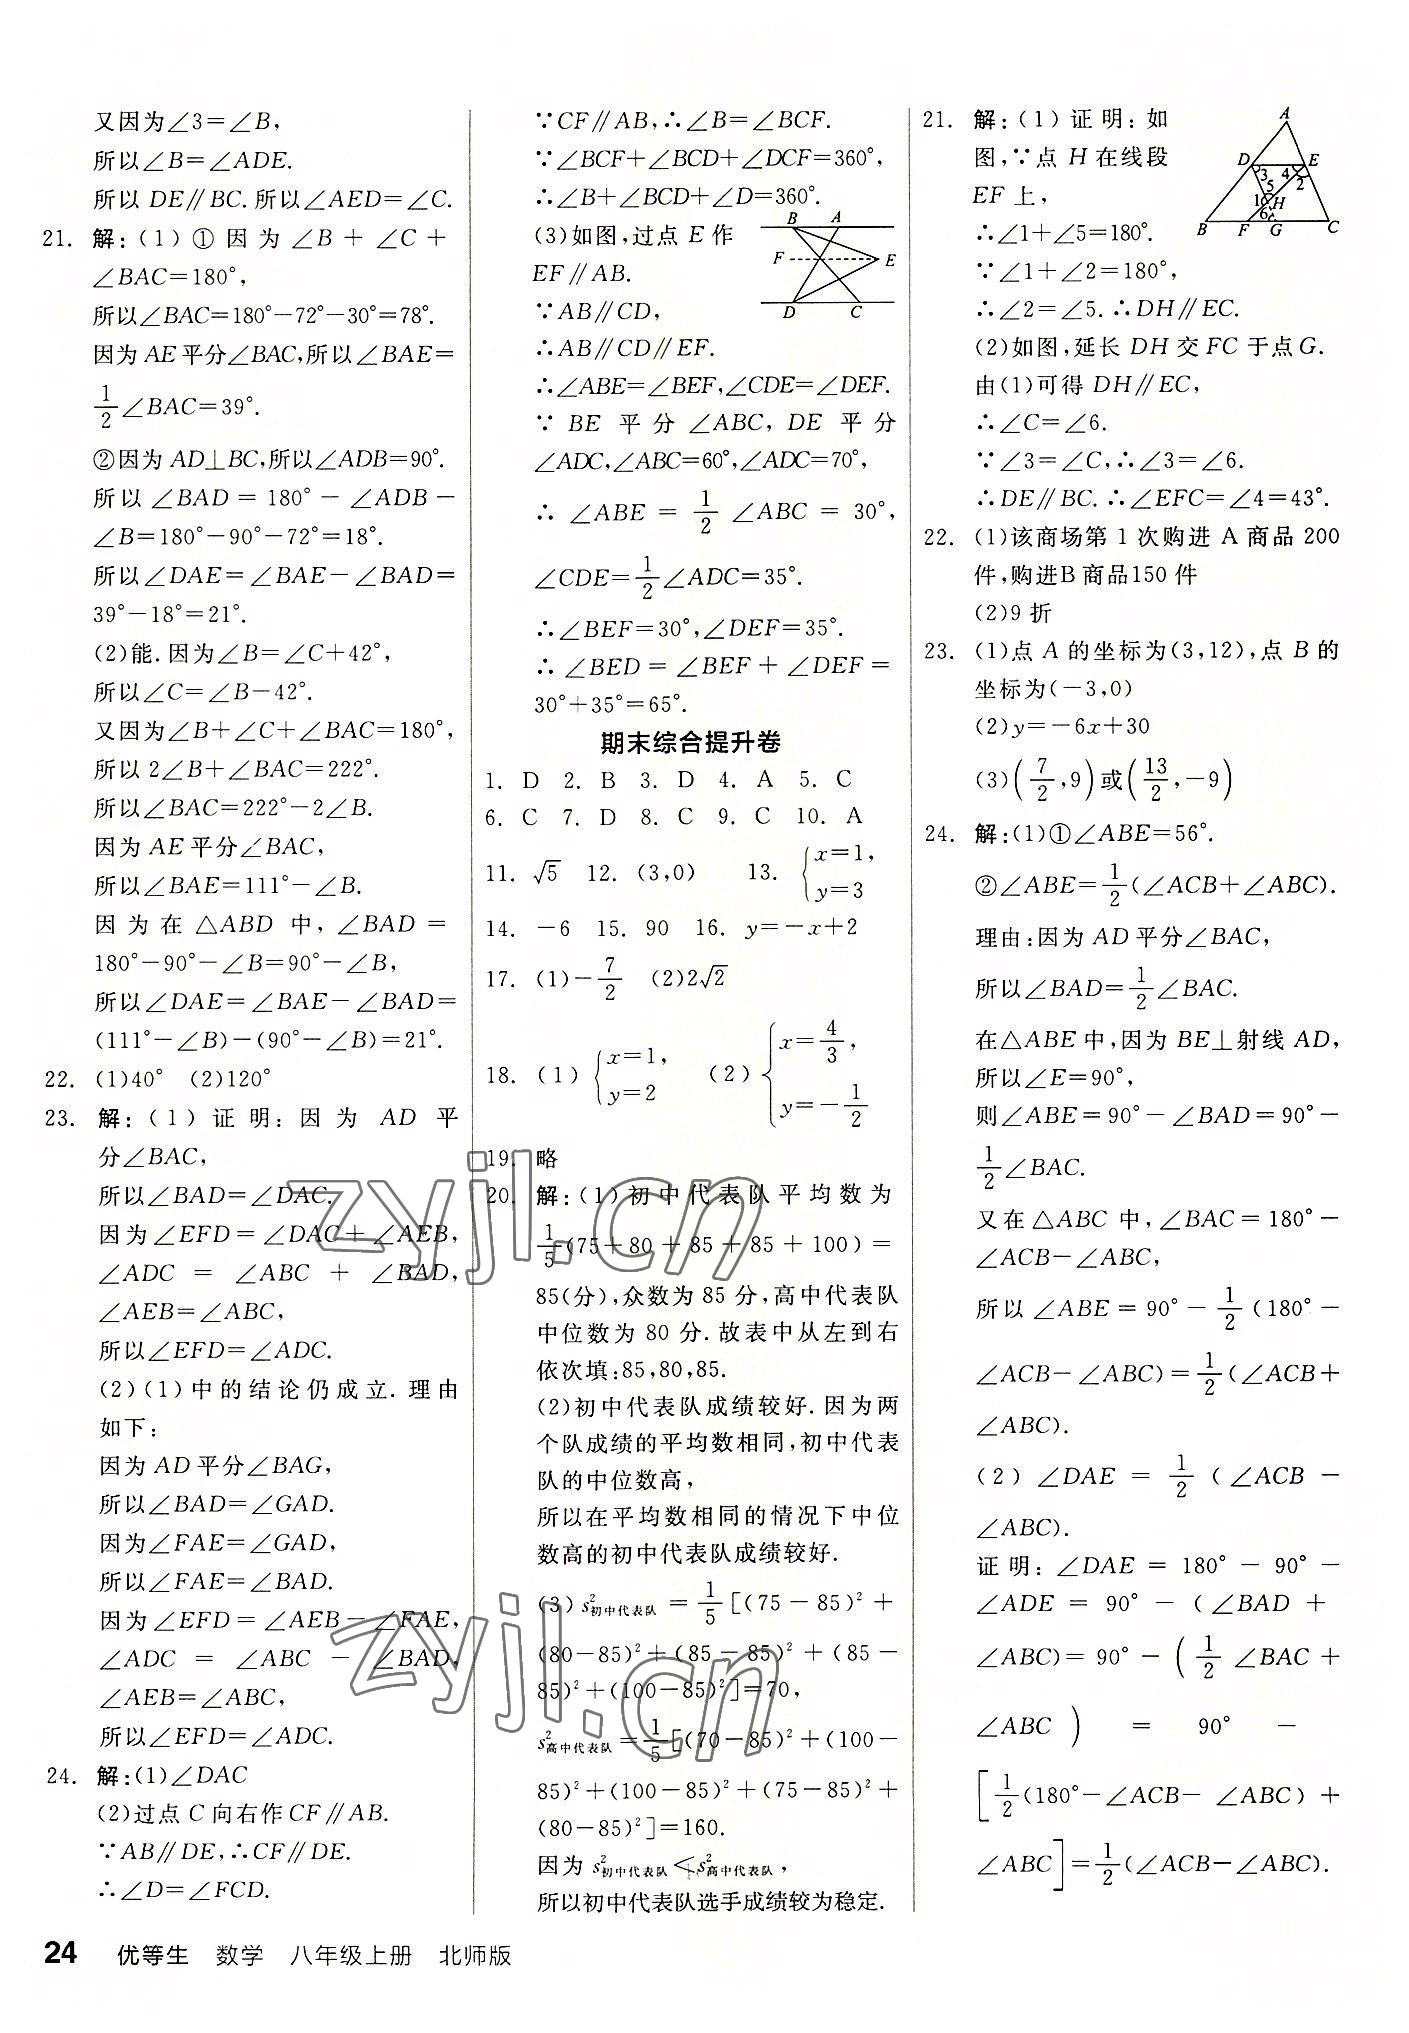 又因为∠3=∠B,
所以∠B=∠ADE.
所以 DE∥BC.所以∠AED=∠C.
21. 解:(1)①因为∠B+∠C+
∠BAC=180°,
所以∠BAC=180°-72°-30°=78°.
因为AE平分∠BAC,所以∠BAE=
1/2∠BAC=39°.
②因为AD⊥BC,所以∠ADB=90°.
所以∠BAD=180°-∠ADB-
∠B=180°-90°-72°=18°.
所以∠DAE=∠BAE-∠BAD=
39°-18°=21°.
(2)能.因为∠B=∠C+42°,
所以∠C=∠B-42°.
又因为∠B+∠C+∠BAC=180°,
所以2∠B+∠BAC=222°.
所以∠BAC=222°-2∠B.
因为AE平分∠BAC,
所以∠BAE=111°-∠B.
因为在△ABD中,∠BAD=
180°-90°-∠B=90°-∠B,
所以∠DAE=∠BAE-∠BAD=
(111°-∠B)-(90°-∠B)=21°.
22. (1)40° (2)120°
23. 解:(1)证明:因为 AD 平
分∠BAC,
所以∠BAD=∠DAC.
因为∠EFD=∠DAC+∠AEB,
∠ADC=∠ABC+∠BAD,
∠AEB=∠ABC,
所以∠EFD=∠ADC.
(2)(1)中的结论仍成立.理由
如下:
因为AD平分∠BAG,
所以∠BAD=∠GAD.
因为∠FAE=∠GAD,
所以∠FAE=∠BAD.
因为∠EFD=∠AEB-∠FAE,
∠ADC=∠ABC-∠BAD,
∠AEB=∠ABC,
所以∠EFD=∠ADC.
24. 解:(1)∠DAC
(2)过点C向右作CF∥AB.
∵AB∥DE,∴CF∥DE.
∴∠D=∠FCD.
∵CF∥AB,∴∠B=∠BCF.
∵∠BCF+∠BCD+∠DCF=360°,
∴∠B+∠BCD+∠D=360°.
(3)如图,过点E作
EF∥AB.
∵AB∥CD,
∴AB∥CD∥EF.
B A
F E
D C
∴∠ABE=∠BEF,∠CDE=∠DEF.
∵BE平分∠ABC,DE平分
∠ADC,∠ABC=60°,∠ADC=70°,
∴∠ABE=1/2∠ABC=30°,
∠CDE=1/2∠ADC=35°.
∴∠BEF=30°,∠DEF=35°.
∴∠BED=∠BEF+∠DEF=
30°+35°=65°.
期末综合提升卷
1. D 2. B 3. D 4. A 5. C
6. C 7. D 8. C 9. C 10. A
11. √5 12. (3,0) 13. {x=1,
y=3
14. -6 15. 90 16. y=-x+2
17. (1)-7/2 (2)2√2
18. (1){x=1, y=2 (2){x=4/3, y=-1/2
19. 略
20. 解:(1)初中代表队平均数为
1/5(75+80+85+85+100)=
85(分),众数为85分,高中代表队
中位数为80分.故表中从左到右
依次填:85,80,85.
(2)初中代表队成绩较好.因为两
个队成绩的平均数相同,初中代表
队的中位数高,
所以在平均数相同的情况下中位
数高的初中代表队成绩较好.
(3)s²初中代表队=1/5[(75-85)²+
(80-85)²+(85-85)²+(85-
85)²+(100-85)²]=70,
s²高中代表队=1/5[(70-85)²+(100-
85)²+(100-85)²+(75-85)²+
(80-85)²]=160.
因为s²初中代表队<s²高中代表队,
所以初中代表队选手成绩较为稳定.
21. 解:(1)证明:如
图,∵点H在线段
EF上,
∴∠1+∠5=180°.
∵∠1+∠2=180°,
A
D E
3 4
5 2
1 H
6
B F G C
∴∠2=∠5.∴DH∥EC.
(2)如图,延长DH交FC于点G.
由(1)可得DH∥EC,
∴∠C=∠6.
∵∠3=∠C,∴∠3=∠6.
∴DE∥BC.∴∠EFC=∠4=43°.
22. (1)该商场第1次购进A商品200
件,购进B商品150件
(2)9折
23. (1)点A的坐标为(3,12),点B的
坐标为(-3,0)
(2)y=-6x+30
(3)(7/2,9)或(13/2,-9)
24. 解:(1)①∠ABE=56°.
②∠ABE=1/2(∠ACB+∠ABC).
理由:因为AD平分∠BAC,
所以∠BAD=1/2∠BAC.
在△ABE中,因为BE⊥射线AD,
所以∠E=90°,
则∠ABE=90°-∠BAD=90°-
1/2∠BAC.
又在△ABC中,∠BAC=180°-
∠ACB-∠ABC,
所以∠ABE=90°-1/2(180°-
∠ACB-∠ABC)=1/2(∠ACB+
∠ABC).
(2)∠DAE=1/2(∠ACB-
∠ABC).
证明:∠DAE=180°-90°-
∠ADE=90°-(∠BAD+
∠ABC)=90°-(1/2∠BAC+
∠ABC)=90°-
[1/2(180°-∠ACB-∠ABC)+
∠ABC]=1/2(∠ACB-∠ABC).
24 优等生 数学 八年级上册 北师版
zyjl.cn
zyjl.cn